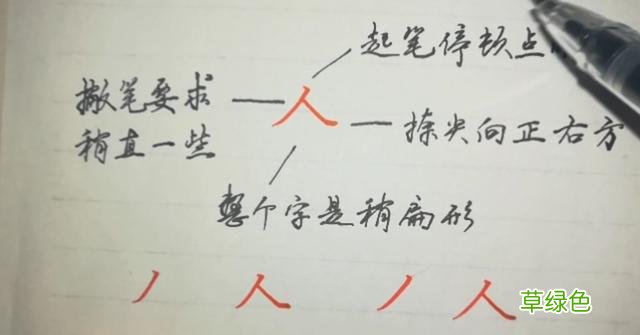 起笔停顿点
撇笔要求
稍直一些
人
捺尖向正右方
整个字是稍扁形
丿 人 丿 人
草绿色